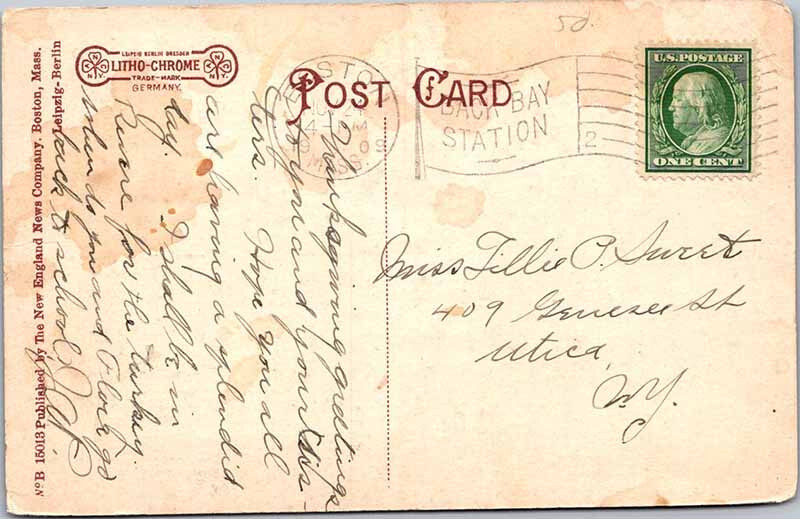 5d.
LEIPZIG BERLIN DRESDEN
LITHO-CHROME
TRADE-MARK
GERMANY.
POST CARD
BOSTON
4
09
MASS.
BACK BAY
STATION
2
U.S. POSTAGE
ONE CENT
Thanksgiving greetings
to you and your sis-
ters. Hope you all
are having a splendid
day. I shall be in
Revere for the turkey.
When do you and Flora go
back to school?
Miss Tillie P. Sweet
409 Genesee St
Utica,
N.Y.
No B 15013 Published by The New England News Company, Boston, Mass.
Leipzig-Berlin